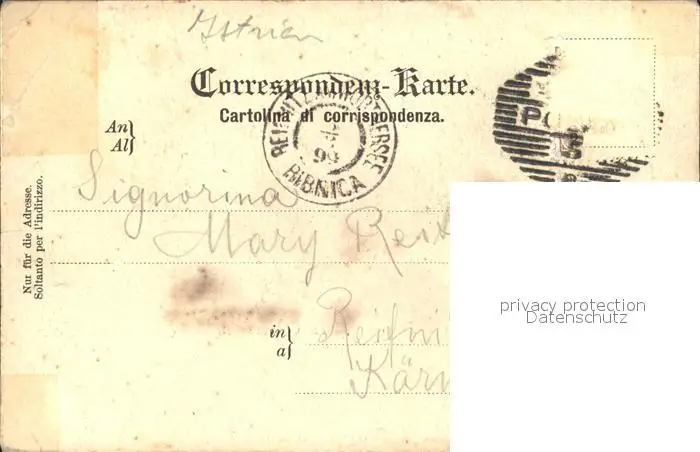 Istrien
Correspondenz-Karte.
Cartolina di corrispondenza.
REIFNITZ AM WÖRTHERSEE
99
RIBNICA
PO
An
Al
Signorina
Mary
Nur für die Adresse.
Soltanto per l'indirizzo.
in
a
Reifni
Kärn
privacy protection
Datenschutz